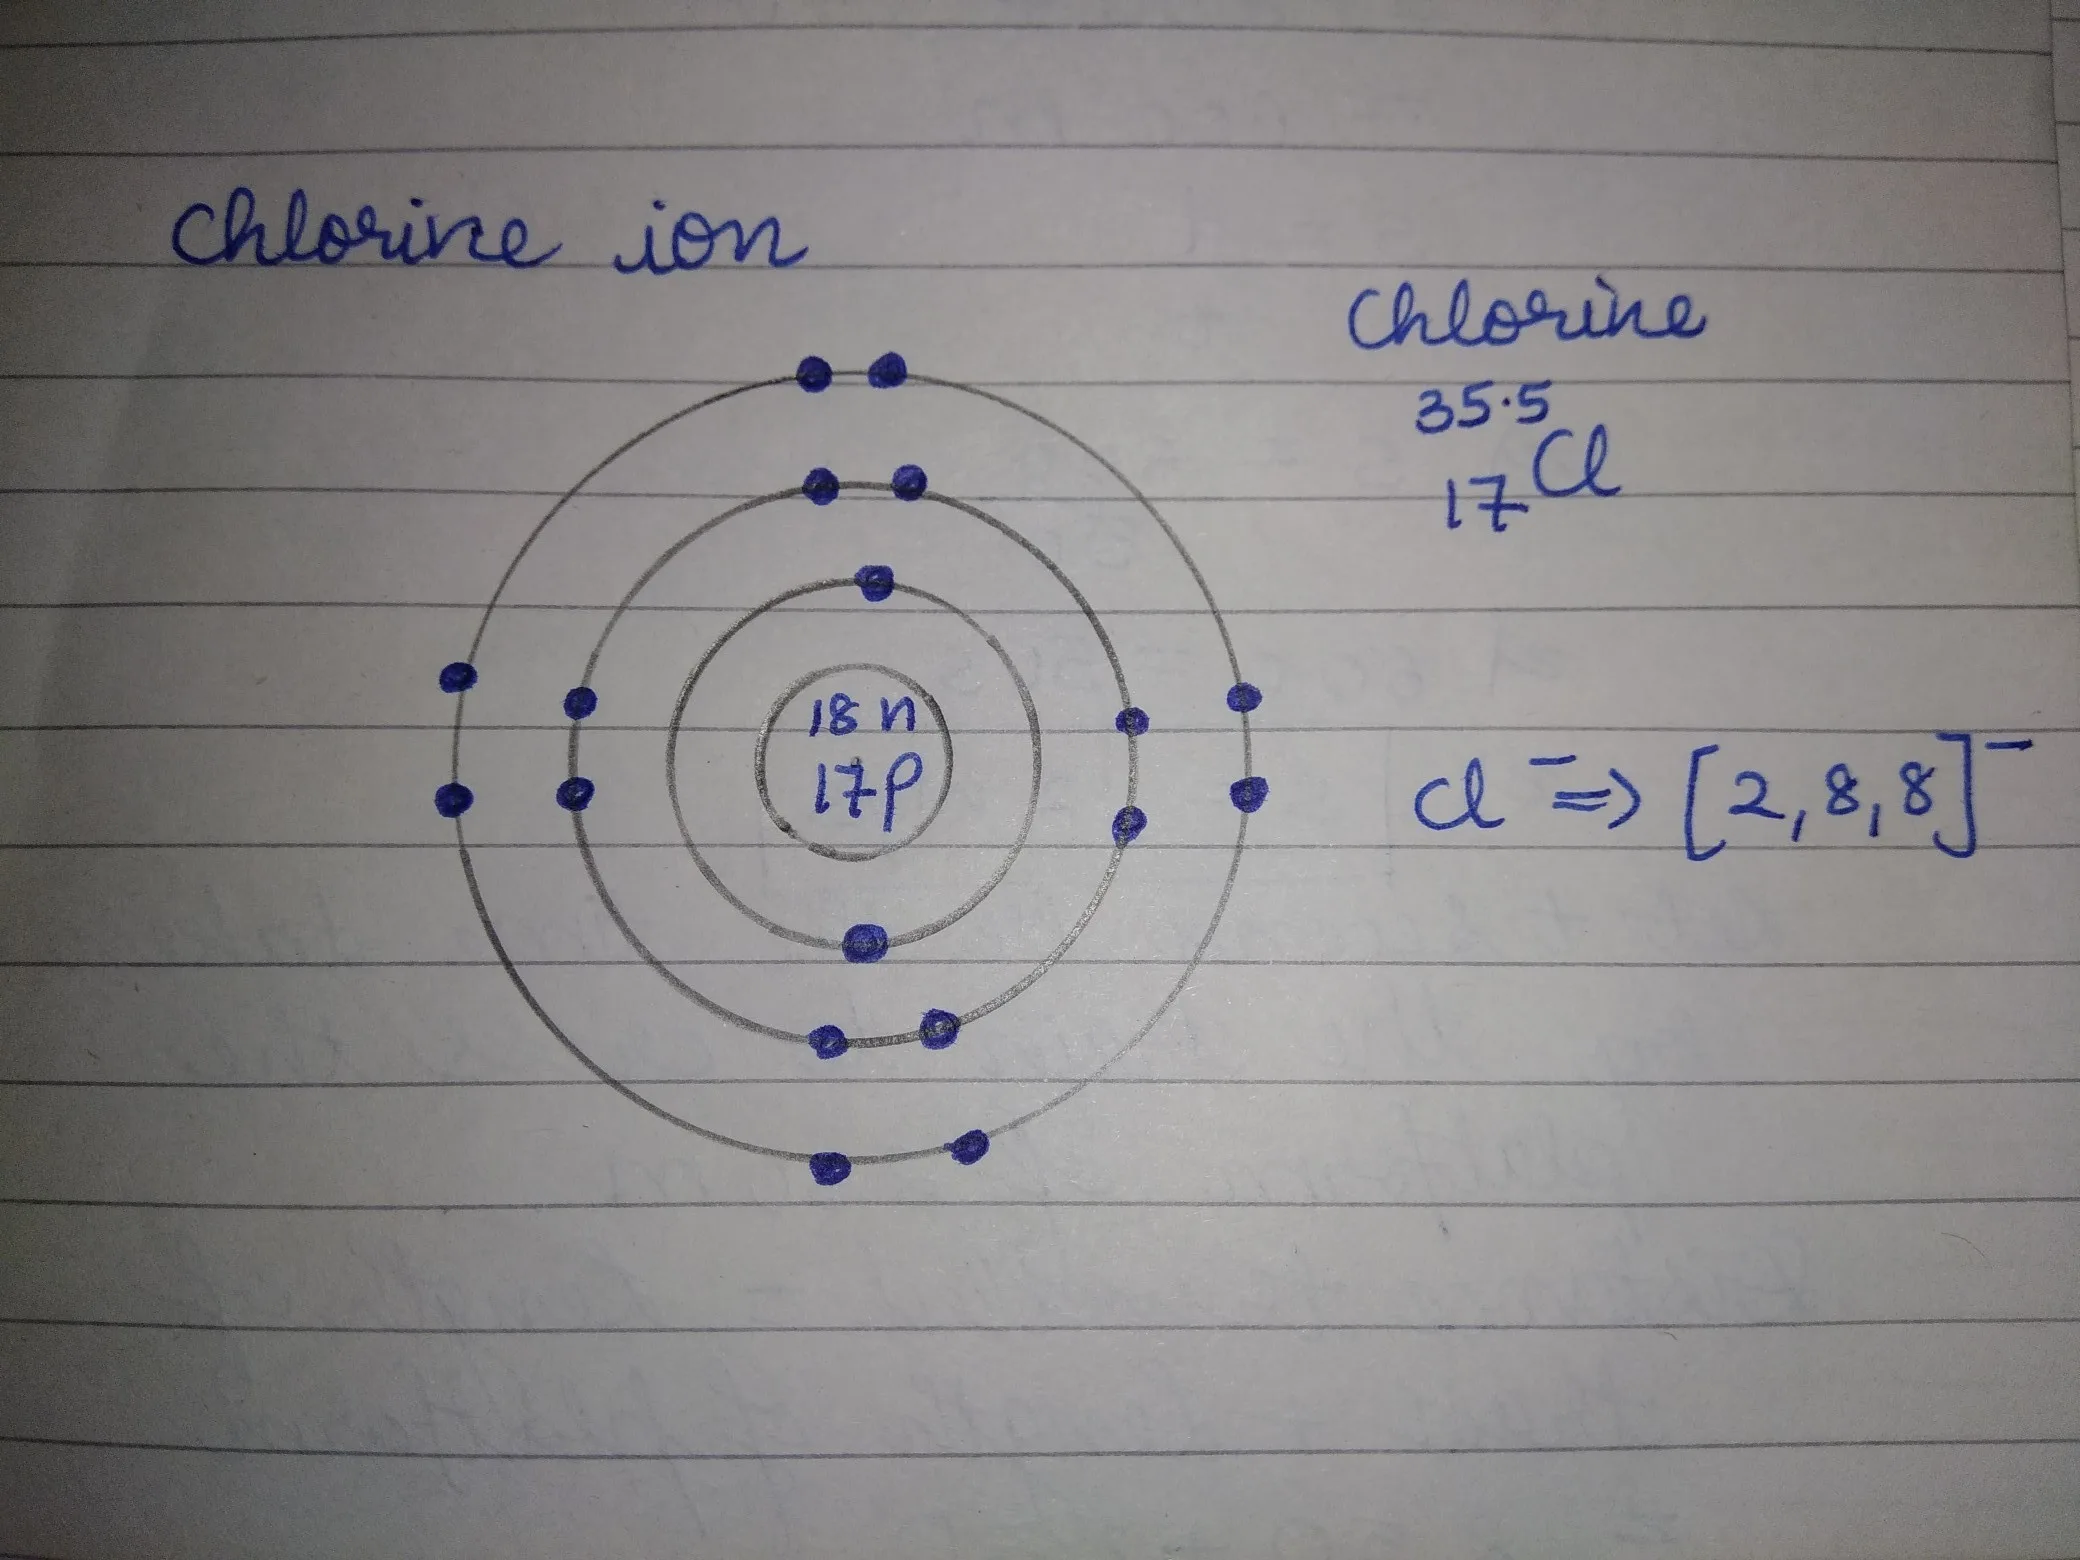 Chlorine ion
Chlorine
35.5
17 Cl
18 n
17 p
Cl⁻ => [2, 8, 8]⁻